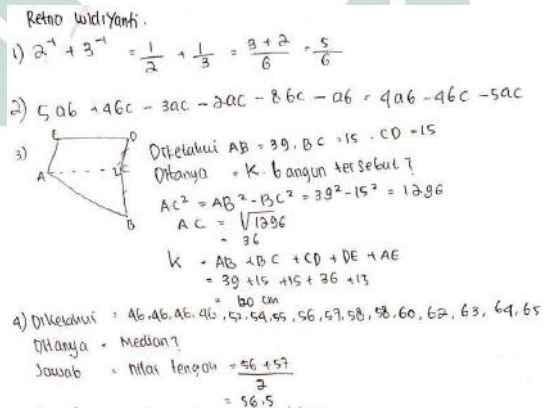 Retno Widiyanti.
1) 2⁻¹ + 3⁻¹ = 1/2 + 1/3 = 3+2/6 = 5/6
2) 5ab + 4bc - 3ac - 2ac - 8bc - ab = 4ab - 4bc - 5ac
3) E D A C B
Diketahui AB = 39, BC = 15, CD = 15
Ditanya = K. bangun tersebut ?
AC² = AB² - BC² = 39² - 15² = 1296
AC = √1296
= 36
K = AB + BC + CD + DE + AE
= 39 + 15 + 15 + 36 + 13
= 120 cm
4) Diketahui : 46, 46, 46, 46, 52, 54, 55, 56, 57, 58, 58, 60, 62, 63, 64, 65
Ditanya = Median ?
Jawab = nilai tengah = 56 + 57/2
= 56.5